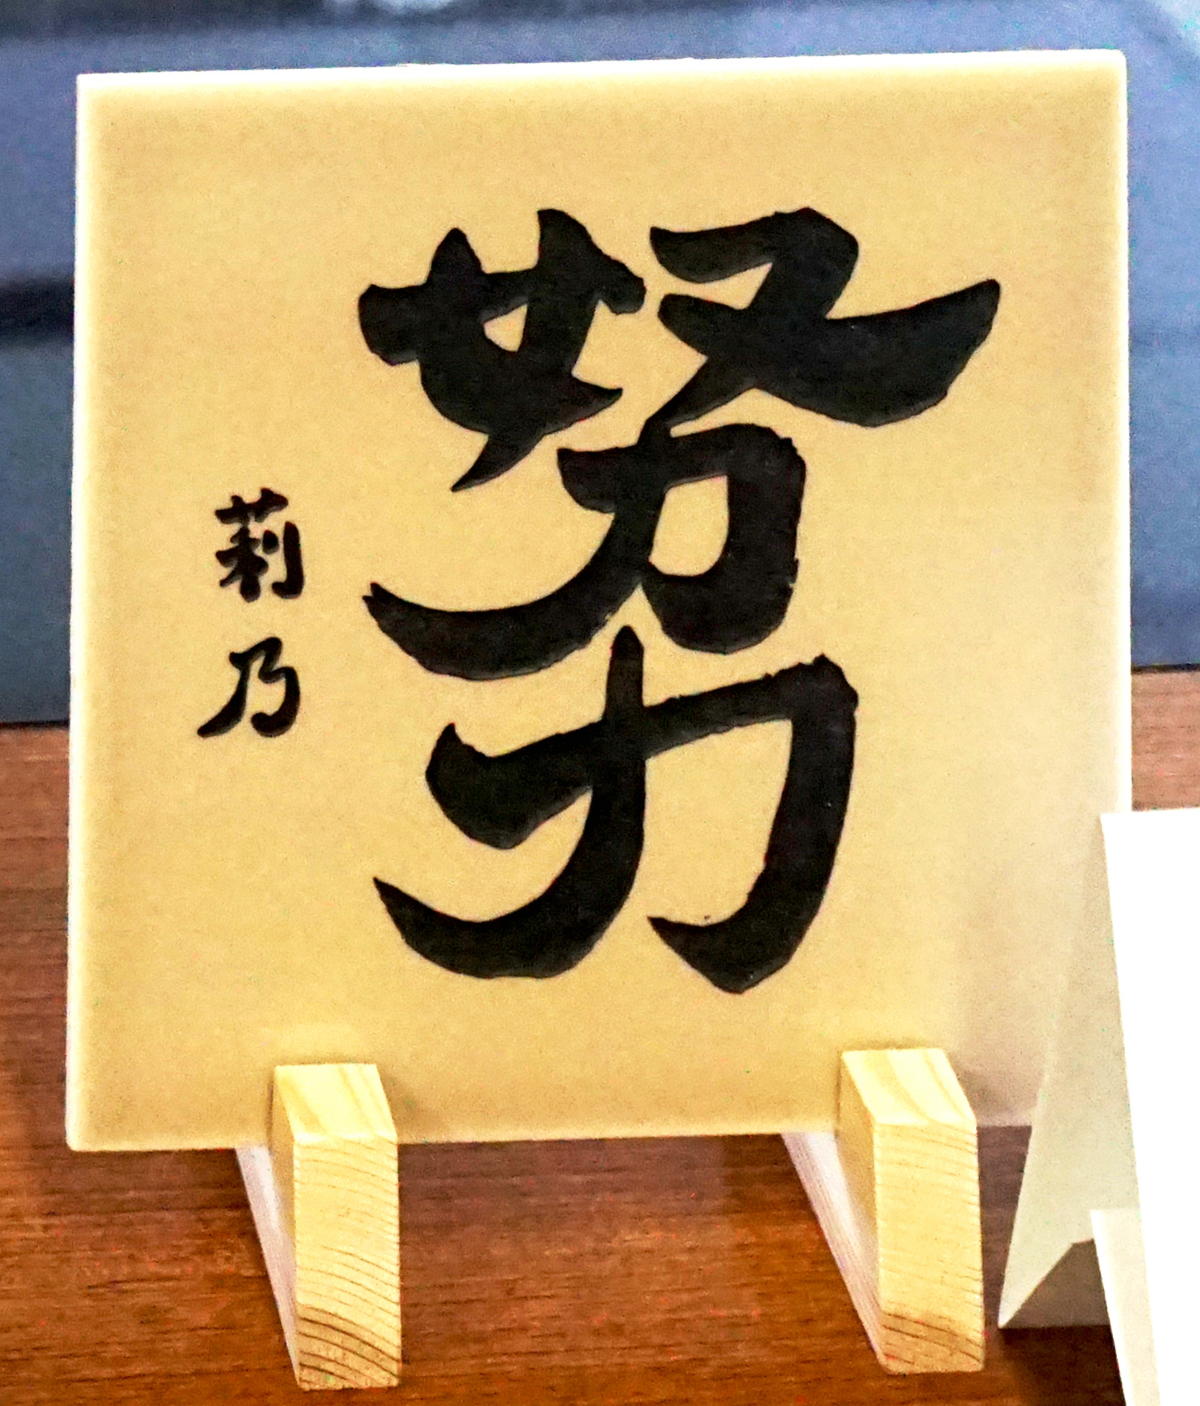 努力
莉乃